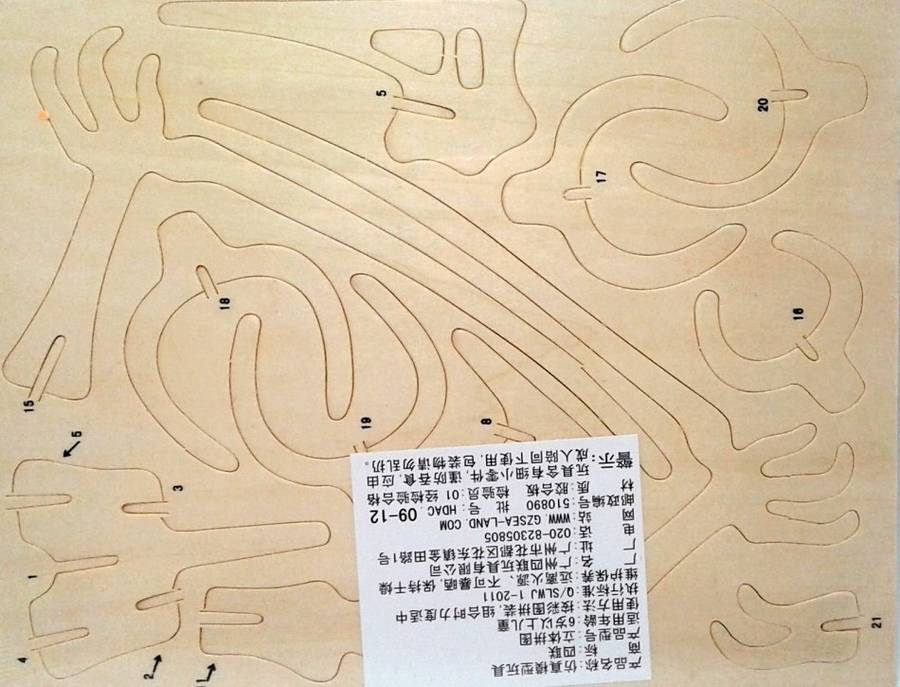 产品名称:仿真模型玩具
商 标:四联
产品型号:立体拼图
适用年龄:6岁以上儿童
使用方法:按彩图拼装,组合时力度适中
执行标准:Q/SLWJ 1-2011
维护保养:远离火源、不可暴晒,保持干燥
厂 名:广州四联玩具有限公司
厂 址:广州市花都区花东镇金田路1号
电 话:020-82305805
网 站:WWW.GZSEA-LAND.COM
邮政编号:510890 批 号:HDAC 09-12
材 质:胶合板 检验员:01 经检验合格
警示:玩具含有细小零件,谨防吞食,应由
成人陪同下使用,包装物请勿乱扔。
5
20
17
18
16
15
19
8
5
3
1
4
2
1
21